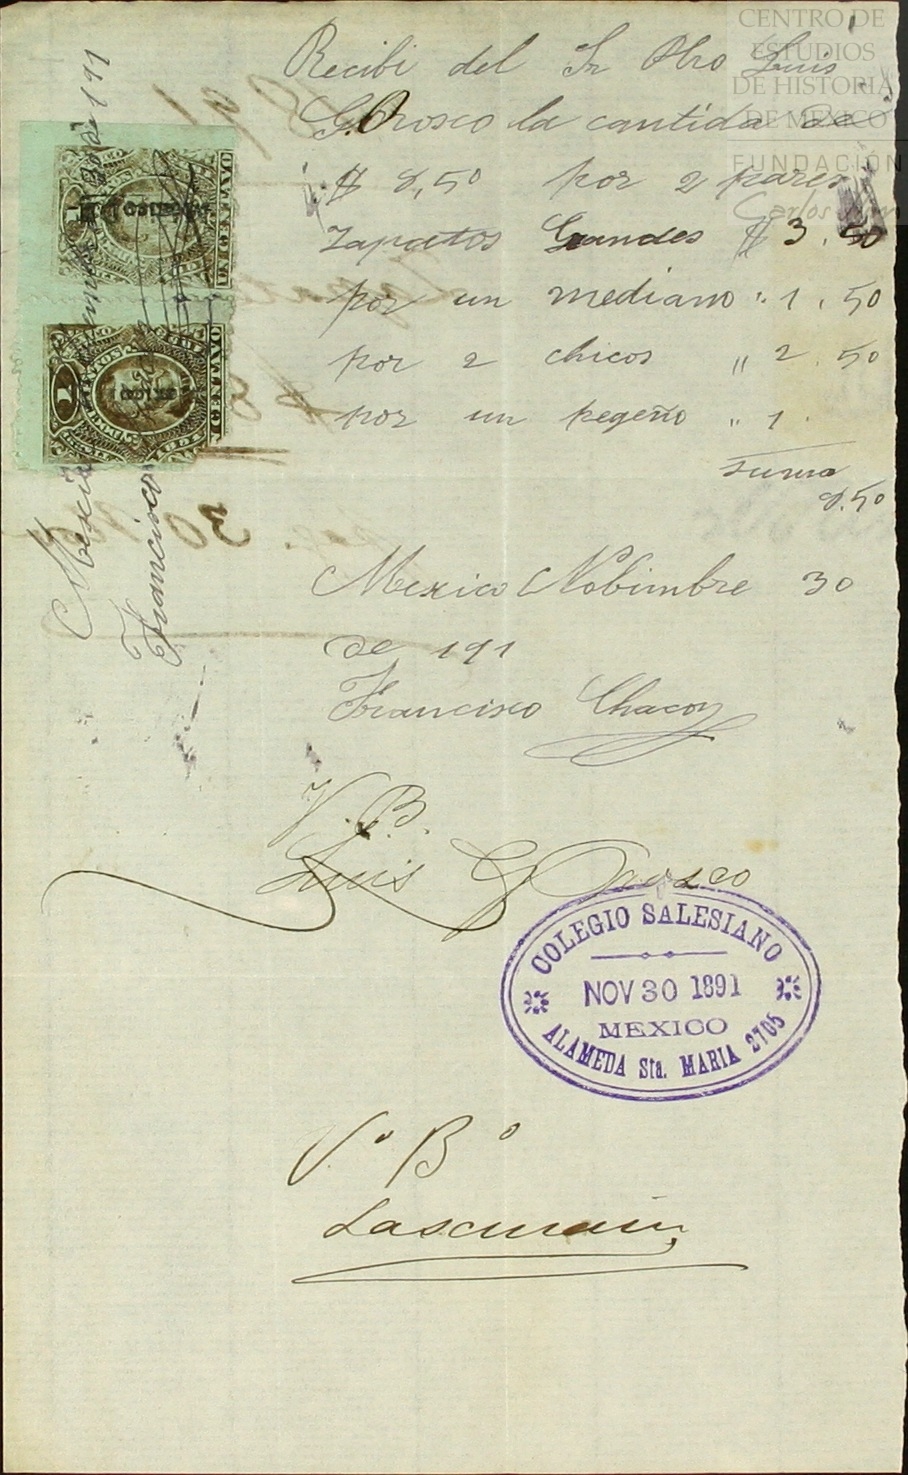 Recibi del Sr Pbro Luis
G. Orosco la cantida de
$ 8,50 por 2 pares
zapatos Grandes $ 3.50
por un mediano " 1.50
por 2 chicos " 2.50
por un pegeño " 1.
suma
8.50
Mexico Nobimbre 30
de 191
Francisco Chacon
V. B.
Luis G Orosco
COLEGIO SALESIANO
NOV 30 1891
MEXICO
ALAMEDA Sta. MARIA 2705
Vº Bº
Lascurain
Mexico 30 de 191
Francisco
CENTRO DE
ESTUDIOS
DE HISTORIA
DE MEXICO
FUNDACIÓN
Carlos Slim